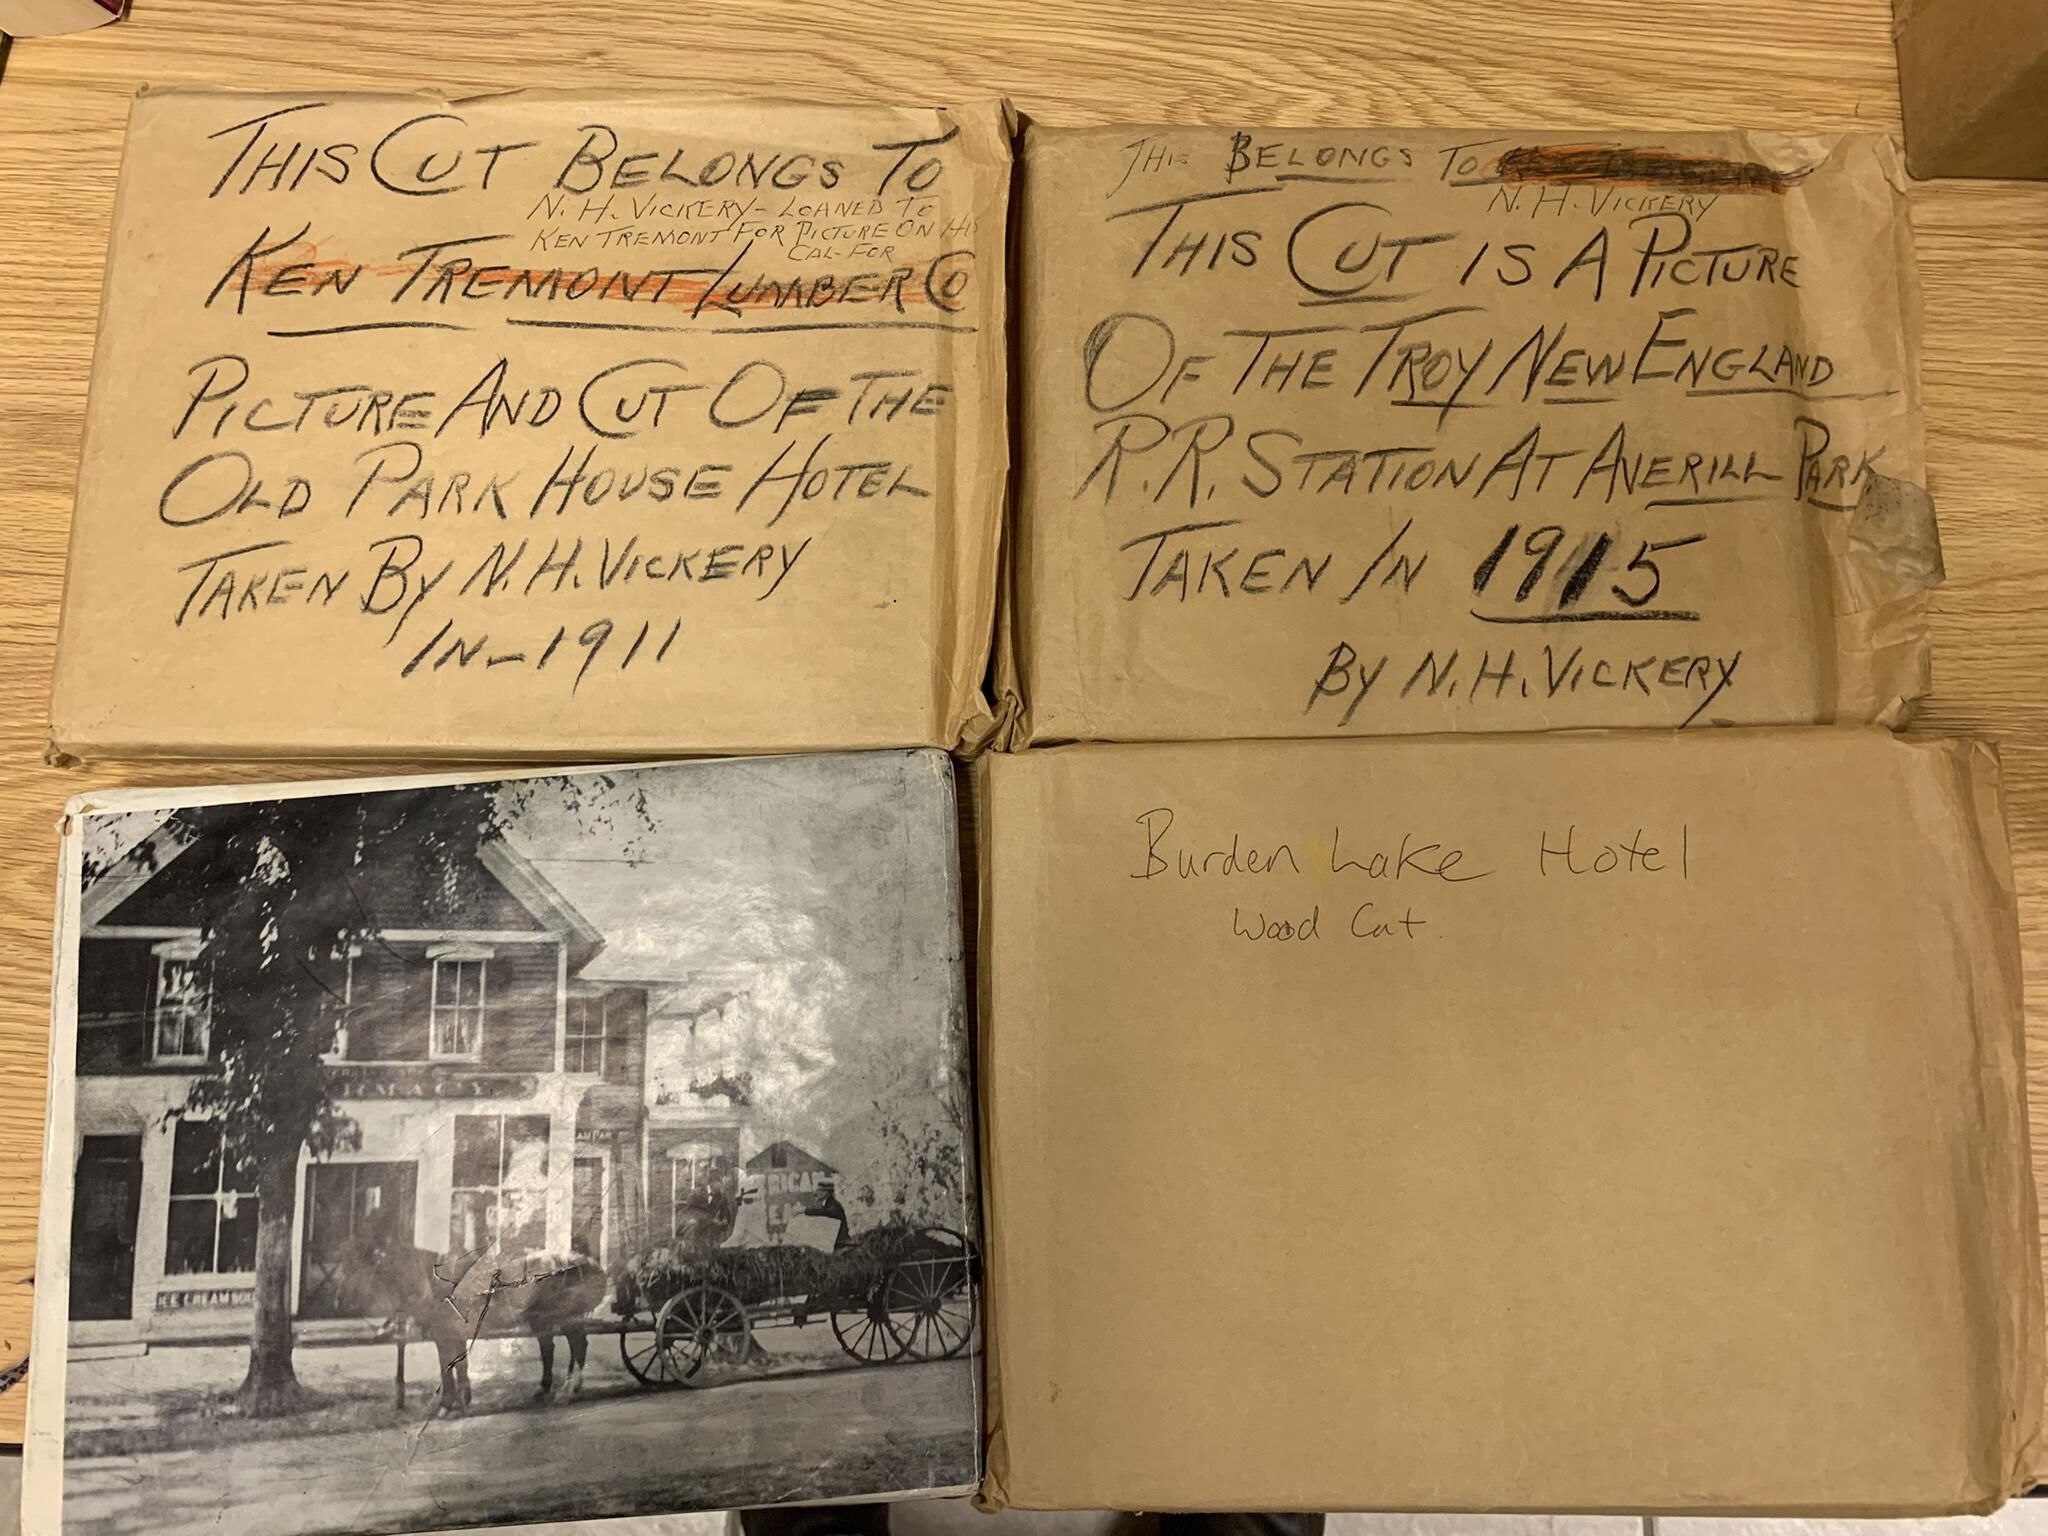 THIS CUT BELONGS TO
N. H. VICKERY - LOANED TO
KEN TREMONT FOR PICTURE ON HIS
CAL-FOR
KEN TREMONT LUMBER CO
PICTURE AND CUT OF THE
OLD PARK HOUSE HOTEL
TAKEN BY N. H. VICKERY
IN - 1911
THIS BELONGS TO
N. H. VICKERY
THIS CUT IS A PICTURE
OF THE TROY NEW ENGLAND
R.R. STATION AT AVERILL PARK
TAKEN IN 1915
BY N. H. VICKERY
RMACY
RICAN
ICE CREAM SO
Burden Lake Hotel
Wood Cut